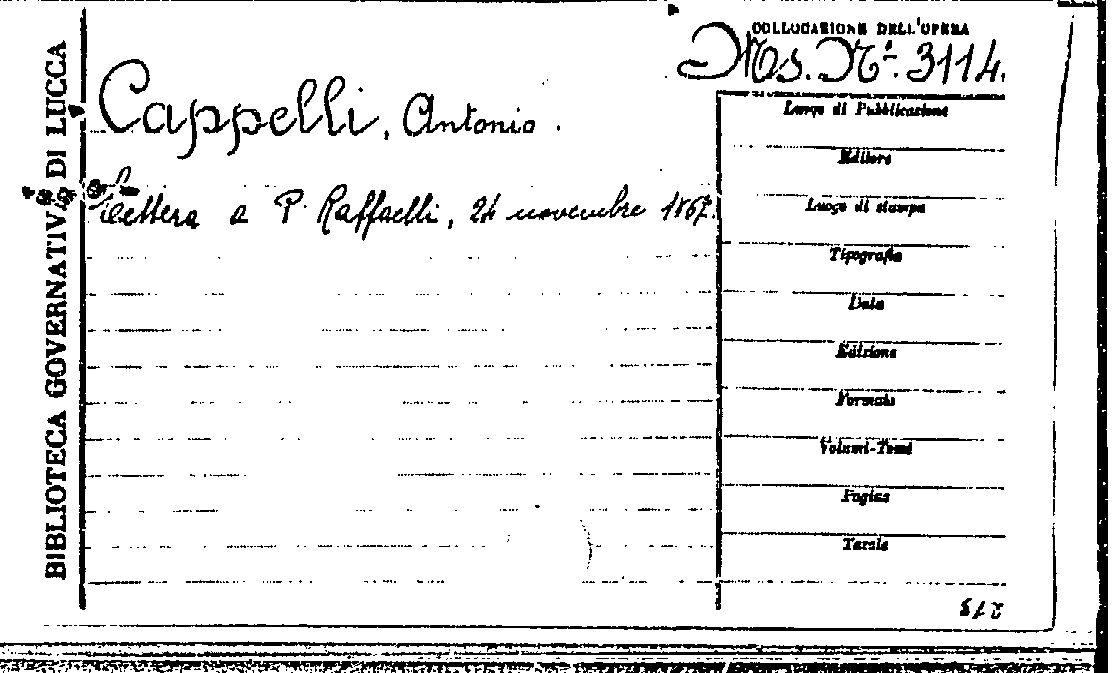 BIBLIOTECA GOVERNATIVA DI LUCCA
COLLOCAZIONE DELL'OPERA
Ms. N.º 3114.
Cappelli, Antonio.
Lettera a P. Raffaelli, 24 novembre 1867.
Luogo di Pubblicazione
Editore
Luogo di stampa
Tipografia
Data
Edizione
Formato
Volumi-Tomi
Pagine
Tavole